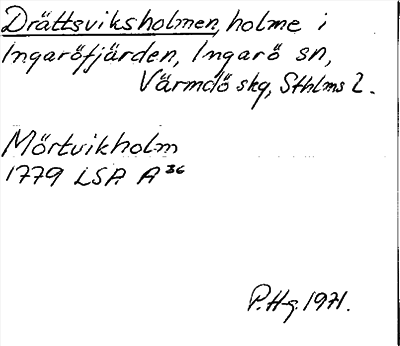 Drättsviksholmen, holme i
Ingaröfjärden, Ingarö sn,
Värmdö skg, Sthlms l.
Mörtvikholm
1779 LSA. A36
P.Hg. 1971.